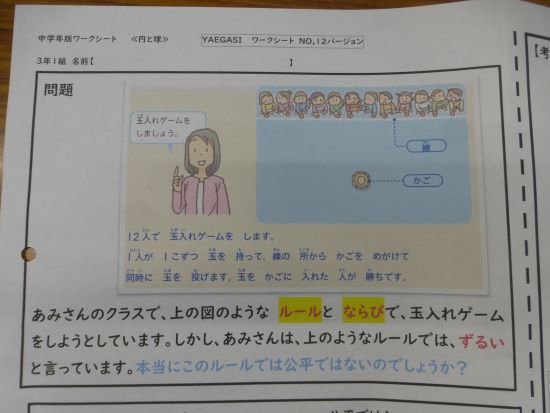 中学年版ワークシート ≪円と球≫ YAEGASI ワークシート NO,12バージョン
3年1組 名前【 】
【考
問題
玉入れゲームを
しましょう。
線
かご
12人で 玉入れゲームを します。
1人が 1こずつ 玉を 持って，線の 所から かごを めがけて
同時に 玉を 投げます。玉を かごに 入れた 人が 勝ちです。
あみさんのクラスで、上の図のような ルールと ならびで、玉入れゲーム
をしようとしています。しかし、あみさんは、上のようなルールでは、ずるい
と言っています。本当にこのルールでは公平ではないのでしょうか？